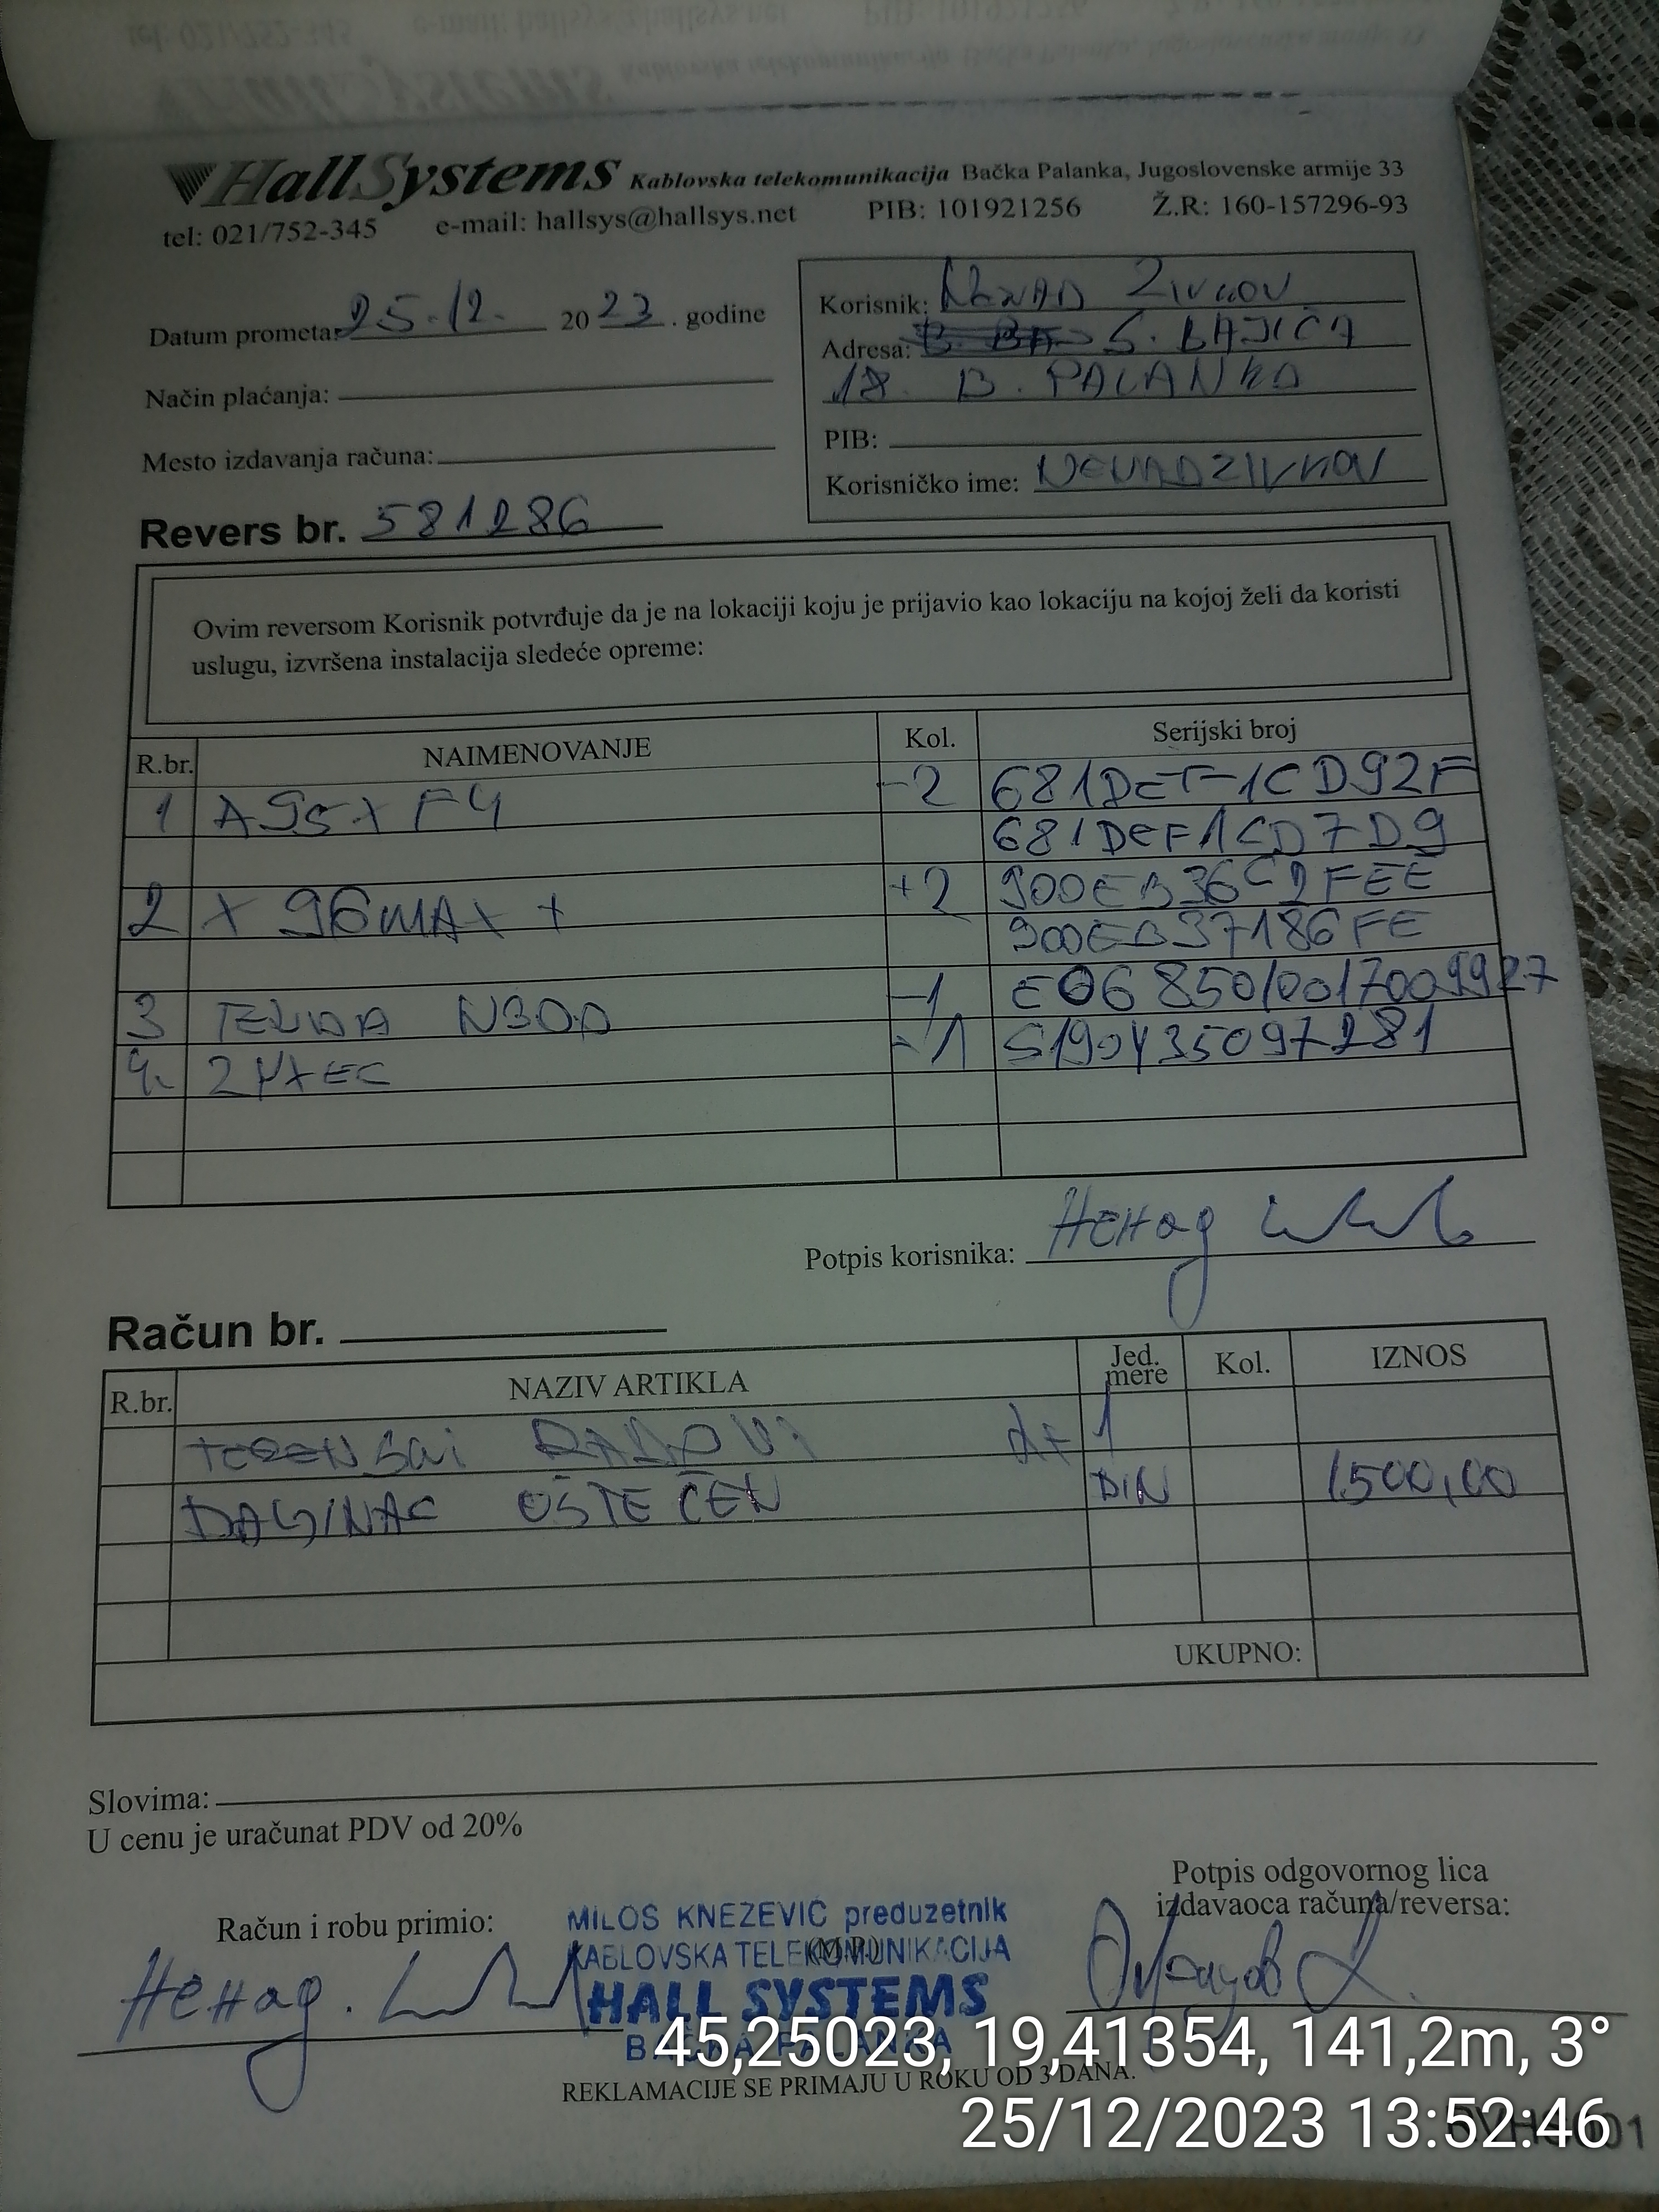 HallSystems Kablovska telekomunikacija Bačka Palanka, Jugoslovenske armije 33
tel: 021/752-345 e-mail: hallsys@hallsys.net PIB: 101921256 Ž.R: 160-157296-93
Datum prometa: 25.12. 2023. godine
Način plaćanja:
Mesto izdavanja računa:
Revers br. 581286
Korisnik: NENAD ZIVKOV
Adresa: S. BAJIĆA
18. B. PALANKA
PIB:
Korisničko ime: NENADZIVKOV
Ovim reversom Korisnik potvrđuje da je na lokaciji koju je prijavio kao lokaciju na kojoj želi da koristi
uslugu, izvršena instalacija sledeće opreme:
R.br. NAIMENOVANJE Kol. Serijski broj
1 A95X F4 -2 681DEF1CD92F
681DEF1CD7D9
2 X96MAX + +2 900EB36C2FEE
900EB37186FE
3 TENDA N300 -1 E0685010017009927
4. ZYXEL -1 S190Y35097281
Potpis korisnika: Ненад
Račun br.
R.br. NAZIV ARTIKLA Jed. mere Kol. IZNOS
TERENSKI RADOVI 1
DALJINAC OŠTEĆEN DIN 1500,00
UKUPNO:
Slovima:
U cenu je uračunat PDV od 20%
Račun i robu primio:
Ненад.
MILOS KNEZEVIĆ preduzetnik
KABLOVSKA TELEKOMUNIKACIJA
(M.P.)
HALL SYSTEMS
BAČKA PALANKA
Potpis odgovornog lica
izdavaoca računa/reversa:
REKLAMACIJE SE PRIMAJU U ROKU OD 3 DANA.
45,25023, 19,41354, 141,2m, 3°
25/12/2023 13:52:46